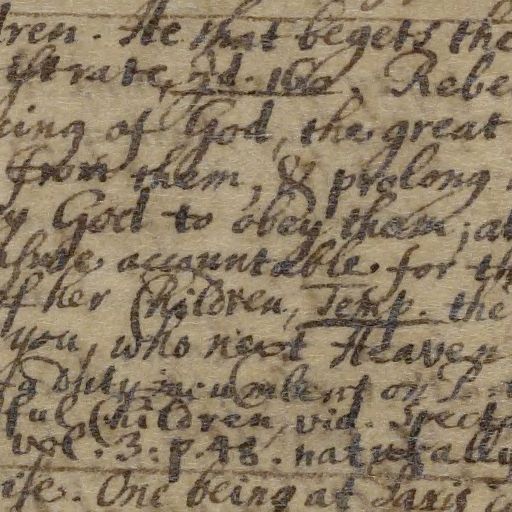 dren. He that begets the
istrate, Id. 160. Rebe
ing of God, the great
from them, & prolong
y God to obey them; a
accountable for th
her Children, Temp. the
you, who next Heaven
Duty incumbent on
ful Children, vid. Spect
vol. 3. p. 48. naturally
ise. One being at Paris